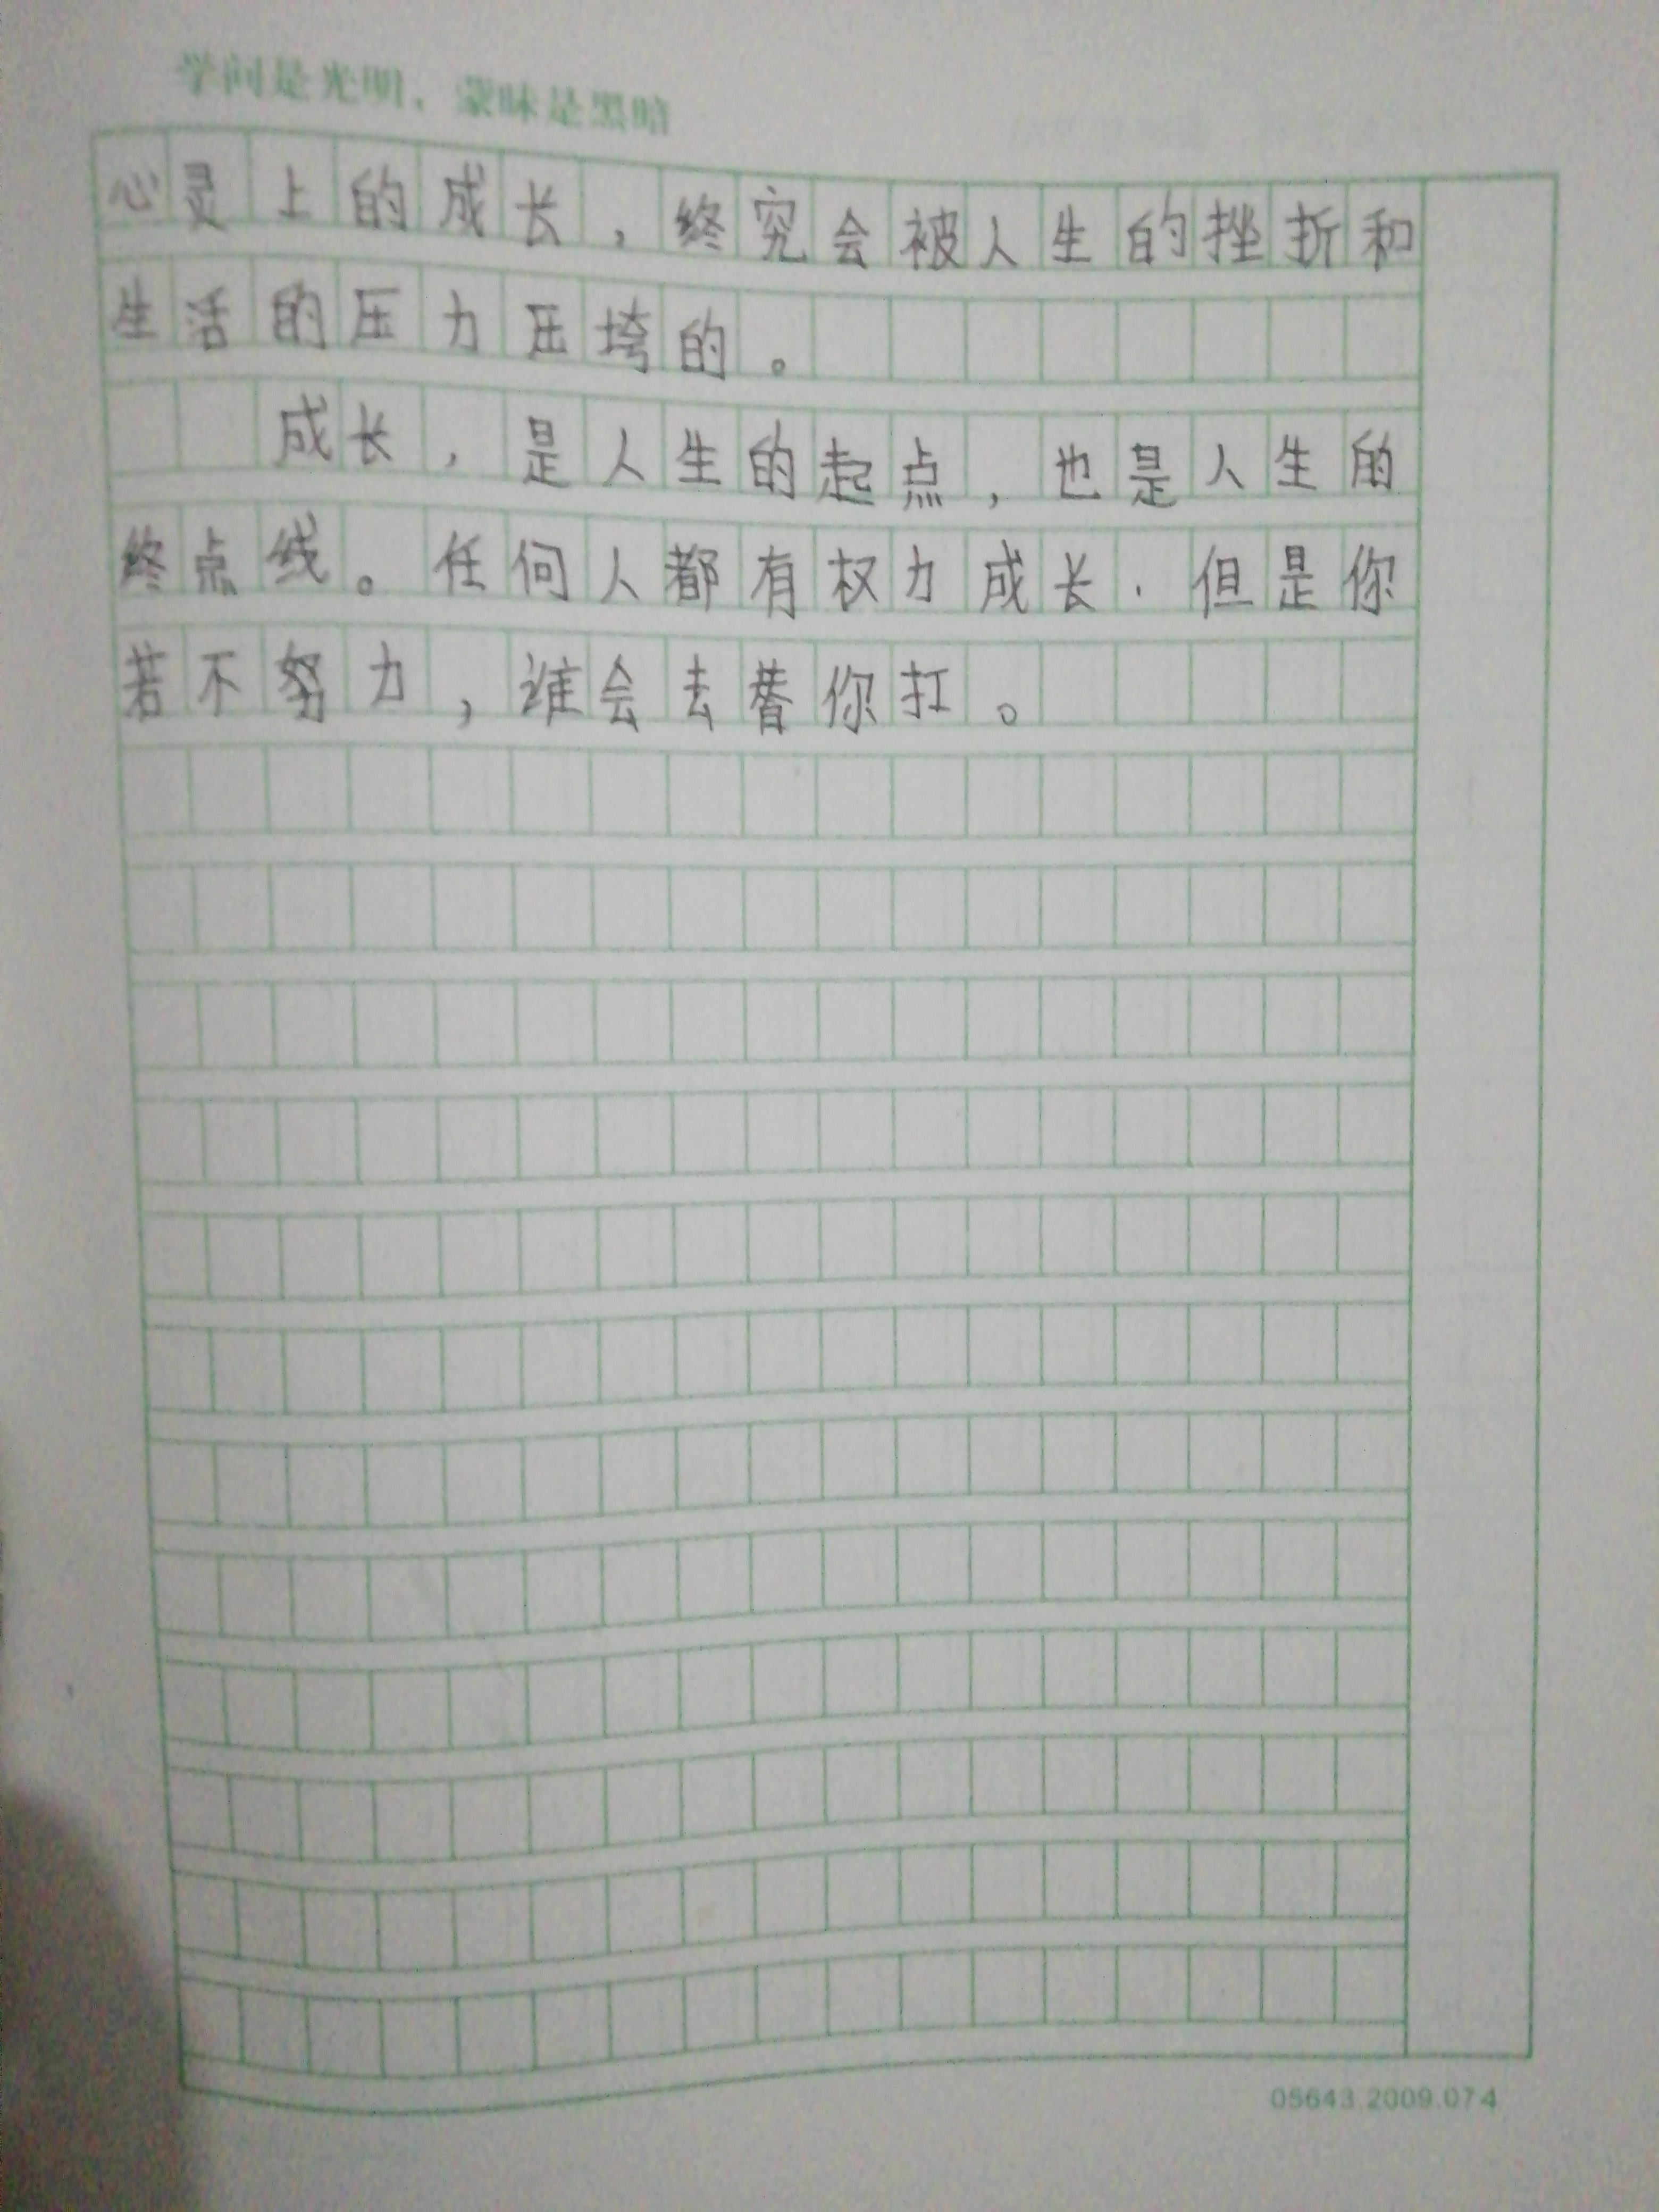 学问是光明，蒙昧是黑暗
心灵上的成长，终究会被人生的挫折和
生活的压力压垮的。
成长，是人生的起点，也是人生的
终点线。任何人都有权力成长．但是你
若不努力，谁会去替你扛。
05643.2009.074